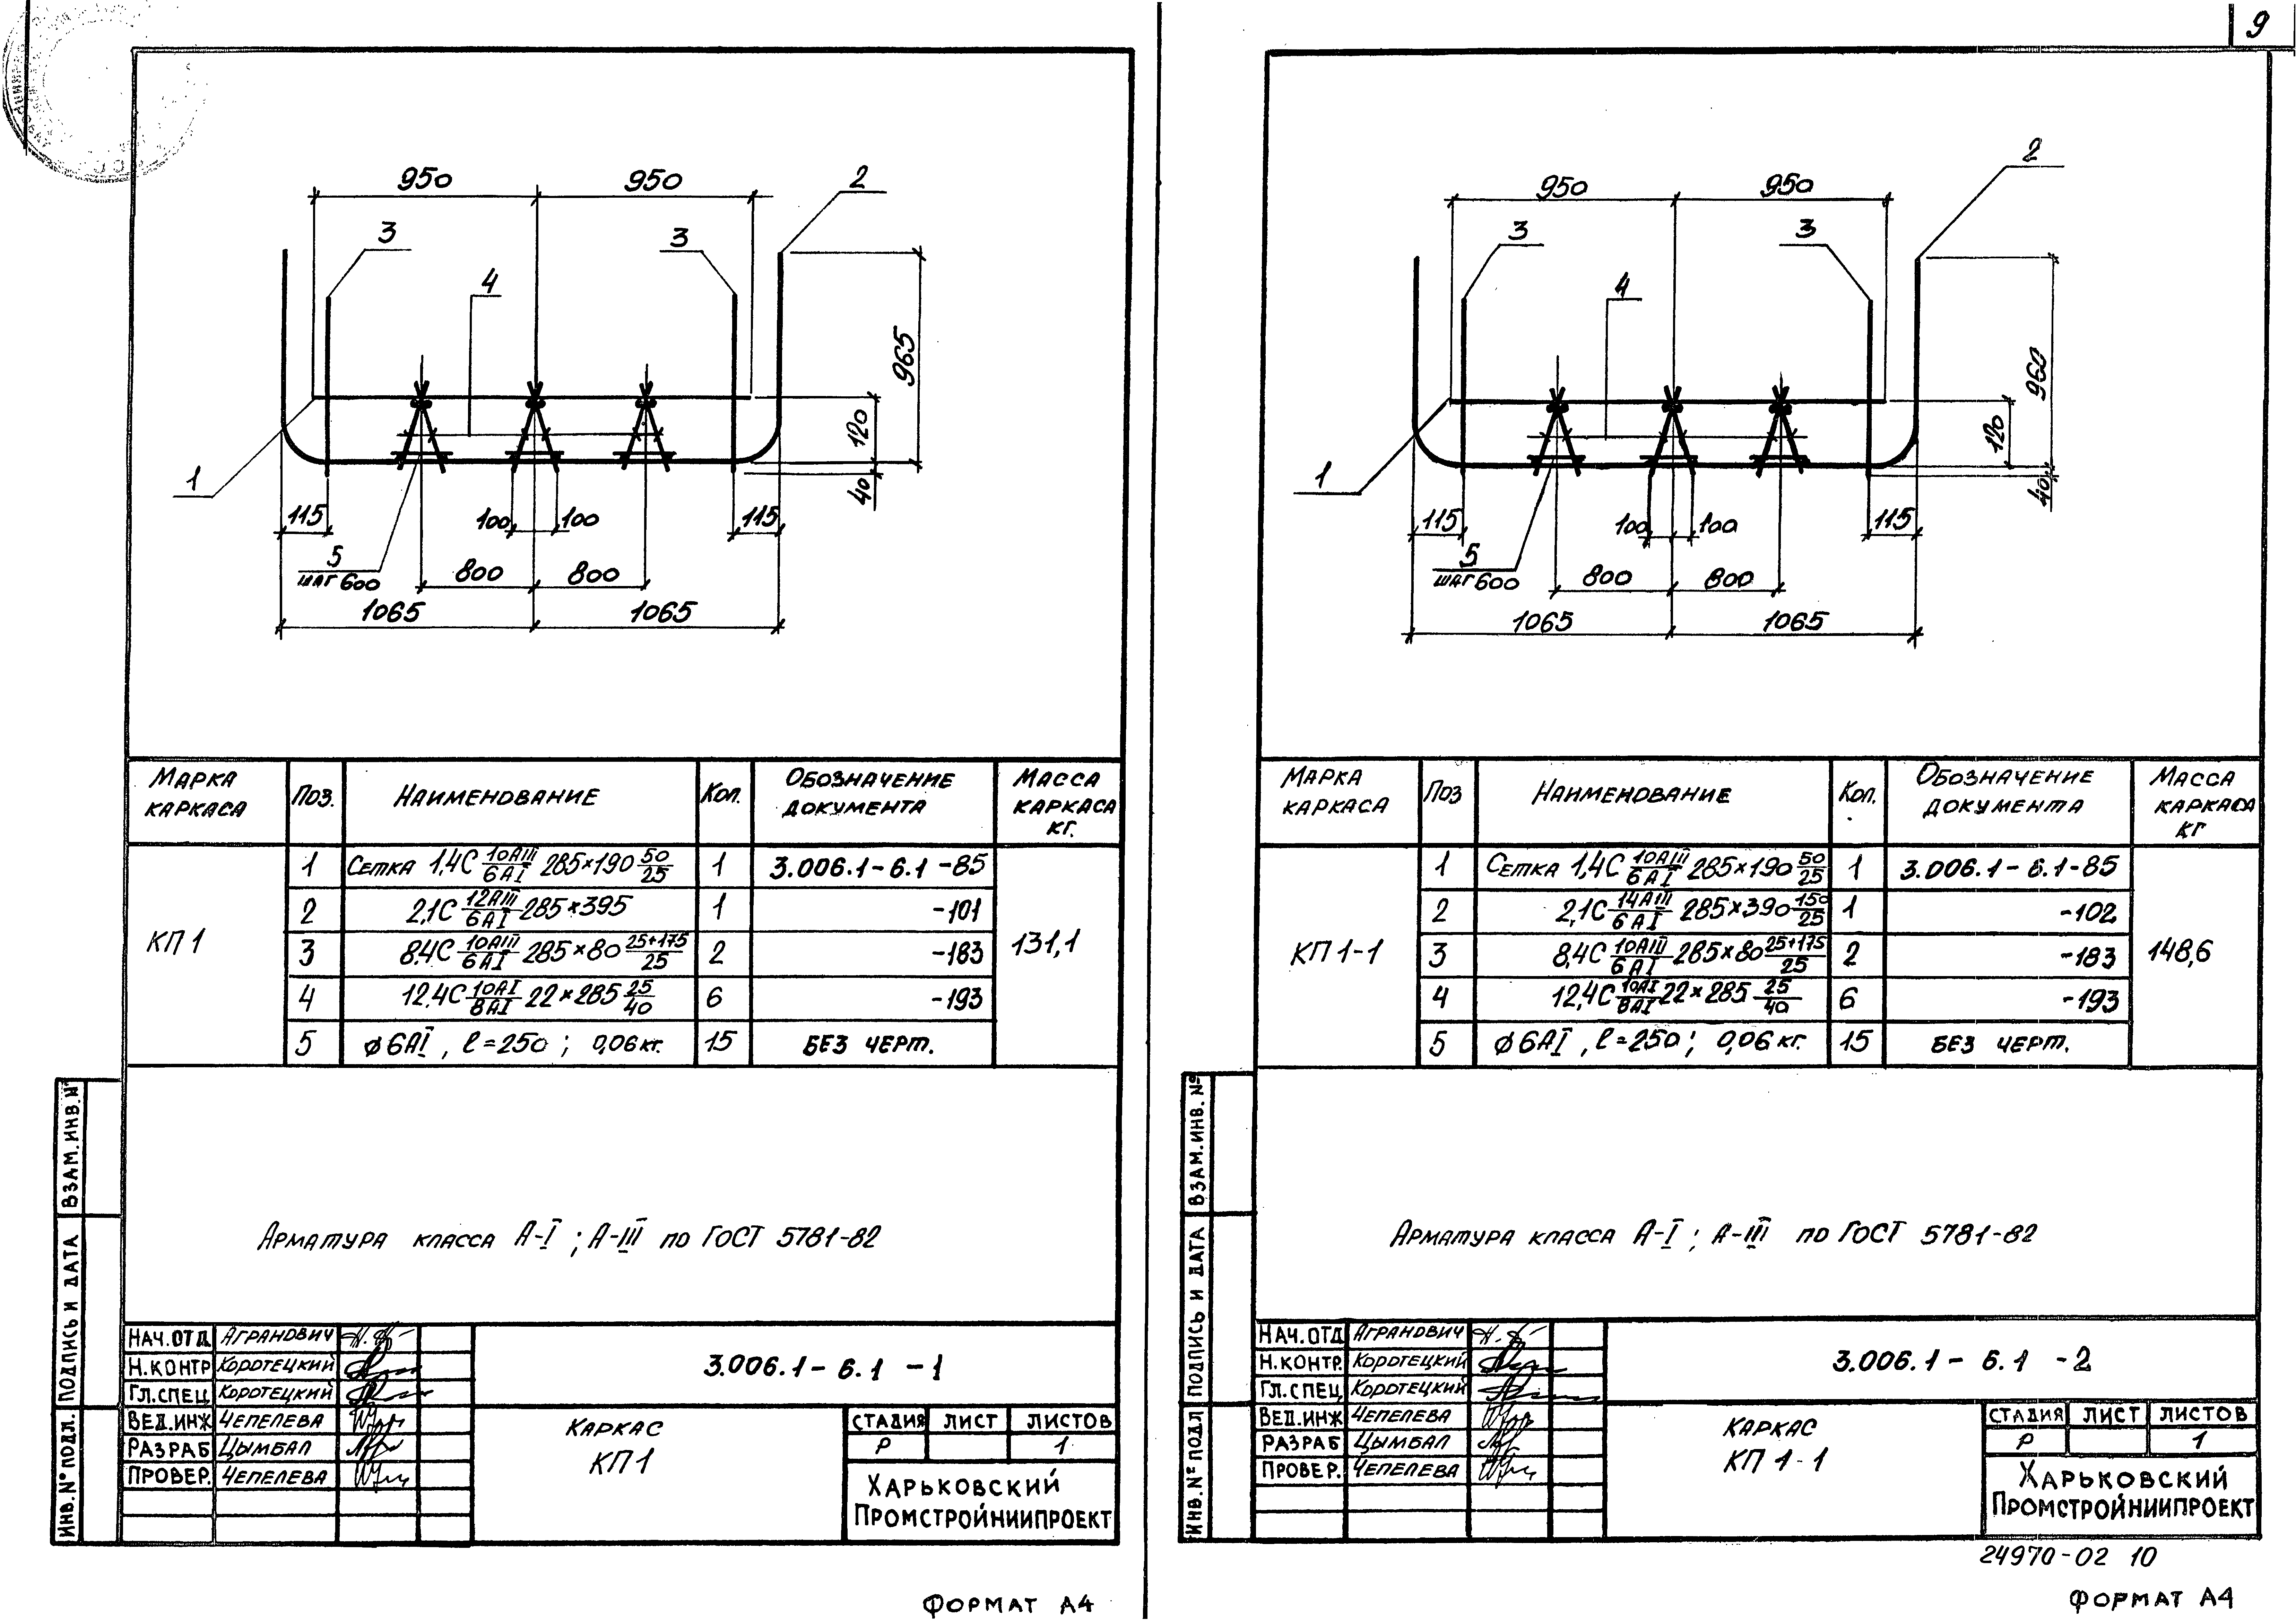 9
950 950 2
3 3
4
965
120
40
1
115 100 100 115
5
шаг 600
800 800
1065 1065
Марка каркаса Поз. Наименование Кол. Обозначение документа Масса каркаса кг.
КП1 131,1
1 Сетка 1,4С 10АIII/6АI 285×190 50/25 1 3.006.1-6.1-85
2 2,1С 12АIII/6АI 285×395 1 -101
3 8.4С 10АIII/6АI 285×80 25+175/25 2 -183
4 12.4С 10АI/8АI 22×285 25/40 6 -193
5 ϕ6АI, ℓ=250; 0,06кг. 15 без черт.
Арматура класса А-I; А-III по ГОСТ 5781-82
Взам.инв.№
Подпись и дата
Инв.№ подл.
Нач.отд Агранович
Н.контр Коротецкий
Гл.спец Коротецкий
Вед.инж Чепелева
Разраб Цымбал
Провер. Чепелева
3.006.1-6.1-1
Каркас
КП1
Стадия Лист Листов
Р 1
Харьковский
Промстройниипроект
Формат А4
950 950 2
3 3
4
960
120
40
1
115 100 100 115
5
шаг 600
800 800
1065 1065
Марка каркаса Поз Наименование Кол. Обозначение документа Масса каркаса кг
КП1-1 148,6
1 Сетка 1,4С 10АIII/6АI 285×190 50/25 1 3.006.1-6.1-85
2 2,1С 14АIII/6АI 285×390 150/25 1 -102
3 8,4С 10АIII/6АI 285×80 25+175/25 2 -183
4 12,4С 10АI/8АI 22×285 25/40 6 -193
5 ϕ6АI, ℓ=250; 0,06кг. 15 без черт.
Арматура класса А-I; А-III по ГОСТ 5781-82
Взам.инв.№
Подпись и дата
Инв.№ подл
Нач.отд Агранович
Н.контр. Коротецкий
Гл.спец Коротецкий
Вед.инж Чепелева
Разраб Цымбал
Провер. Чепелева
3.006.1-6.1-2
Каркас
КП1-1
Стадия Лист Листов
Р 1
Харьковский
Промстройниипроект
24970-02 10
Формат А4